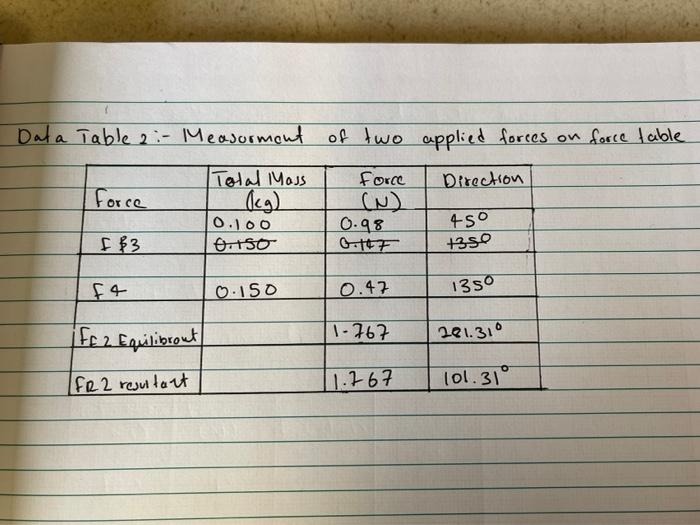 Data Table 2:- Measurment of two applied forces on force table
Force Total Mass (kg) Force (N) Direction
0.100 0.98 45°
F3 0.150 0.147 135°
F4 0.150 0.47 135°
FE2 Equilibrant 1.767 281.31°
FR2 resultant 1.767 101.31°